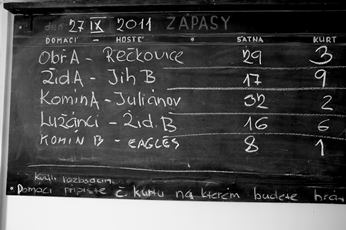 dne 27 IX 2011 ZÁPASY
DOMÁCÍ - HOSTÉ ŠATNA KURT
Obř A - Řečkovice 29 3
Žid A - Jih B 17 9
Komín A - Juliánov 32 2
Lužánci - Žid. B 16 6
KOMÍN B - EAGLES 8 1
Kurtu rozbsocim.
• Domácí připište č. kurtu na kterém budete hrát